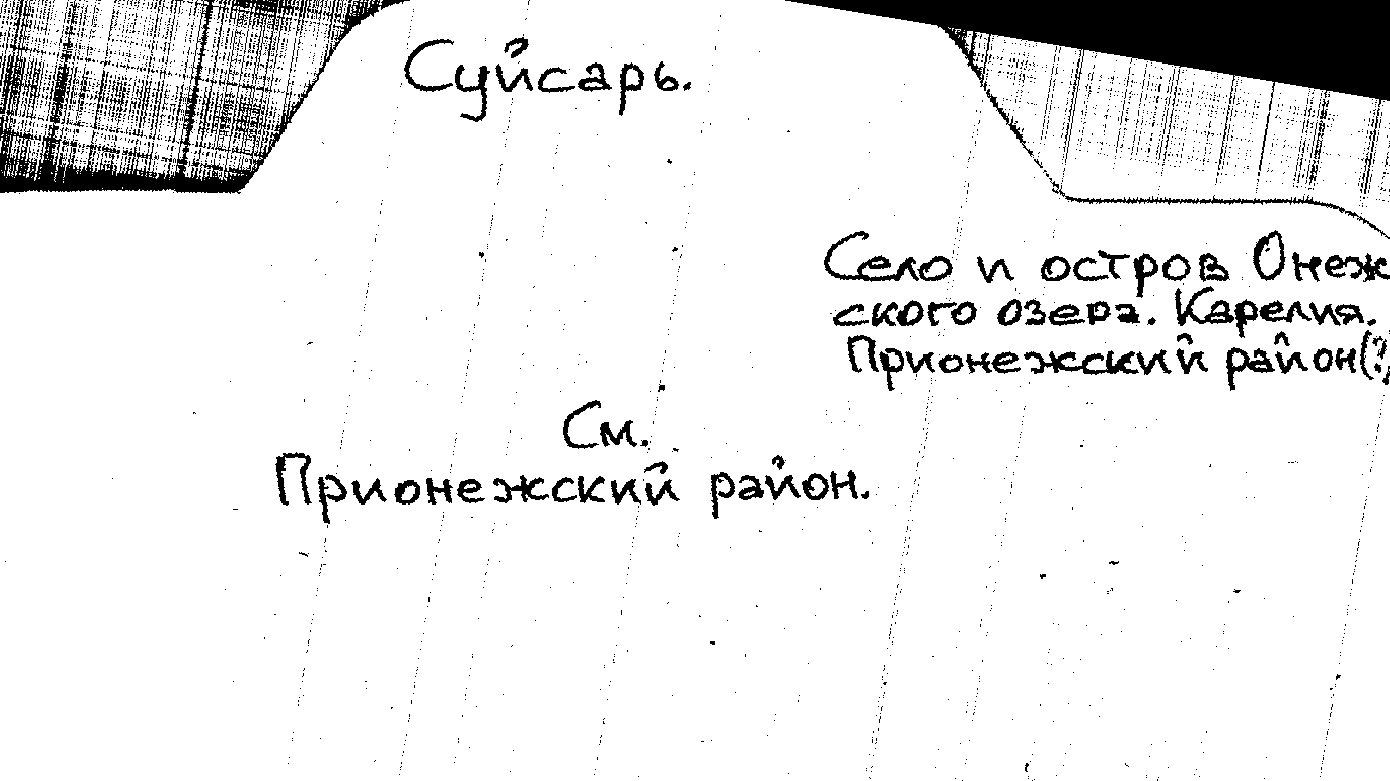 Суйсарь.
Село и остров Онеж
ского озера. Карелия.
Прионежский район(?)
См.
Прионежский район.